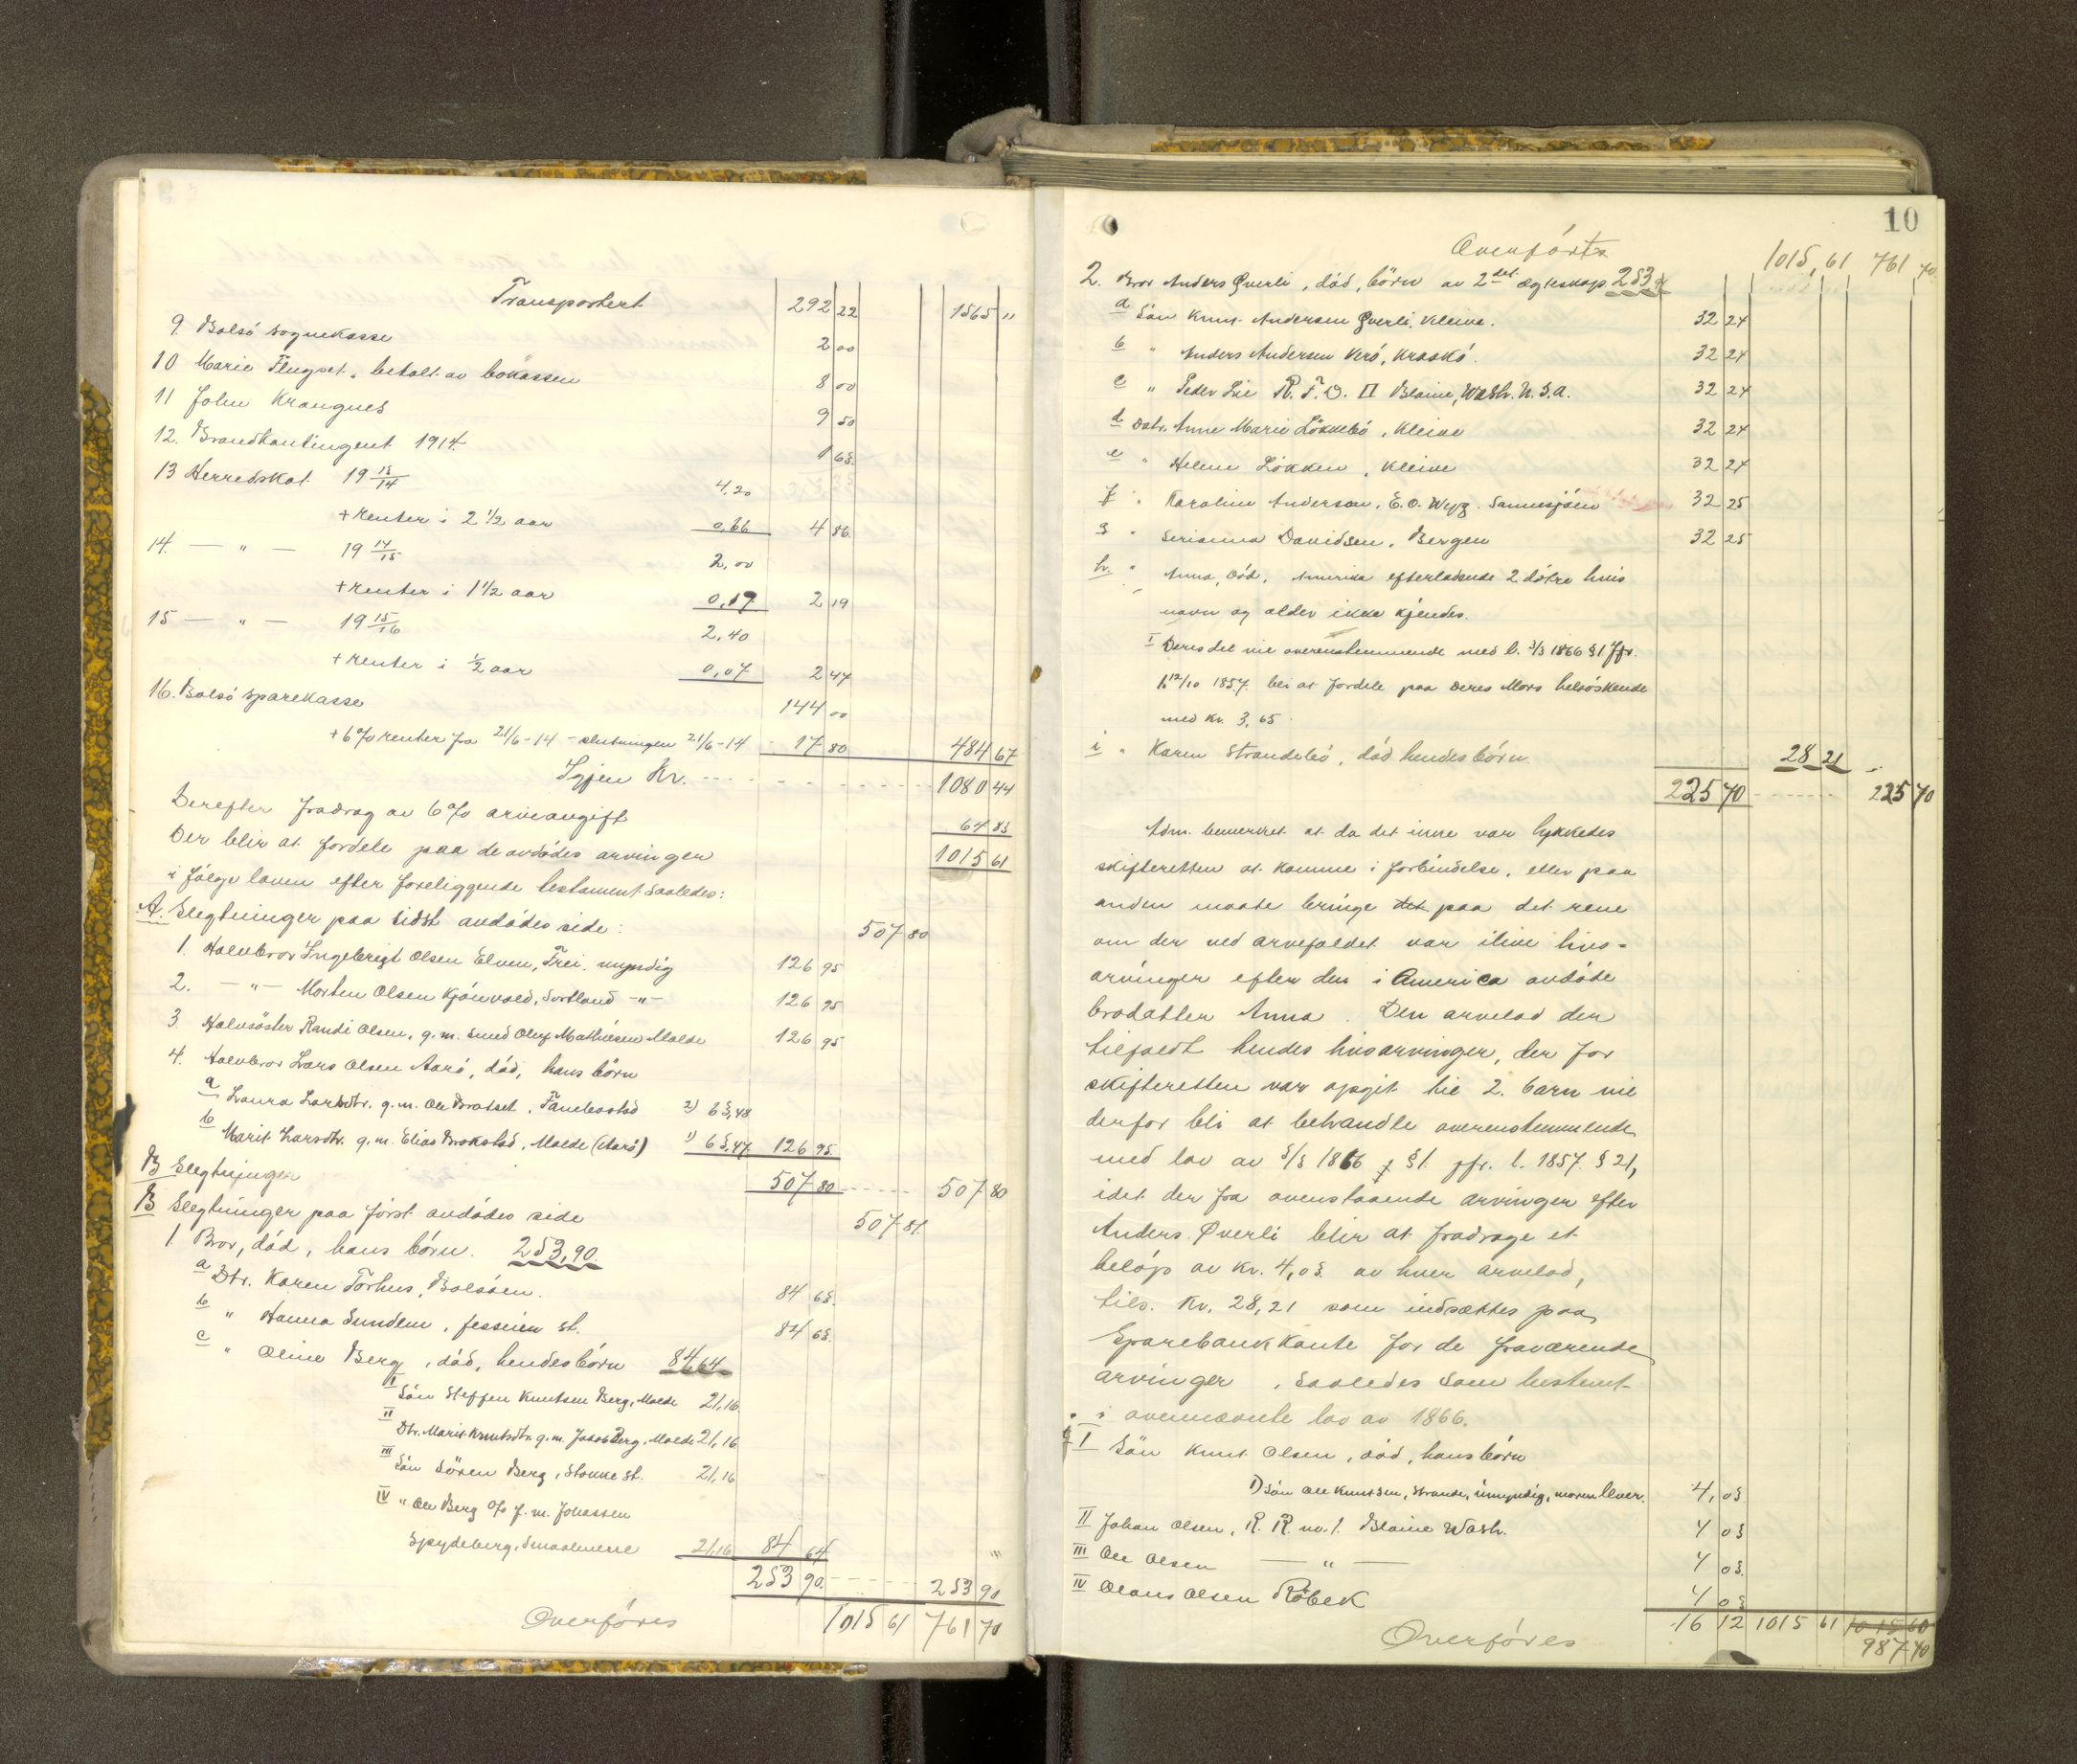 Transportert 292 22 1565 "
9. Bolsö sognekasse 2 00
10 Marie Flugset. betalt av bokassen 8 00
11 John Krangnes 9 50
12. Brandkontingent 1914. 1 65.
13 Herredskat 19 13/14 4,20
+ renter i 2 1/2 aar 0,66 4 86.
14. — " — 19 14/15 2,00
+ renter i 1 1/2 aar 0,19 2 19
15 — " — 19 15/16 2,40
+ renter i 1/2 aar 0,07 2 47
16. Bolsö sparekasse 144 00
+ 6% renter fra 21/6-14 - slutningen 21/6-14 - 17 80 484 67
Igjen Kr. - - - 1080 44
Derefter fradrag av 6% arveavgift 64 83
Der blir at fordele paa de avdödes arvinger 1015 61
i fölge loven efter foreliggende testament saaledes:
A. Slegtninger paa sidst avdödes side: 507 80
1. Halvbror Ingebrigt Olsen Elven, Frei. myndig 126 95
2. — " — Morten Olsen Kjönvold, Sortland —"— 126 95
3. Halvsöster Randi Olsen, g.m. smed Oluf Mathiesen Molde 126 95
4. Halvbror Lars Olsen Aarö, död, hans börn
a Laura Larsdtr. g.m. Ole Bratset, Fannbostad 2) 63,48
b Marit Larsdtr. g.m. Elias Brokstad, Molde (Aarö) 1) 63,47 126 95
B Slegtninger 507 80 - - - 507 80
B Slegtninger paa först avdödes side 507 81.
1. Bror, död, hans börn. 253,90
a Dtr. Karen Torhus, Bolsöen. 84 63.
b " Hanna Sundem, Jesseim st. 84 63.
c " Oline Berg, död, hendes börn 84,64
I Sön Steffen Knutsen Berg, Molde 21,16
II Dtr. Marit Knutsdtr. g.m. Jakob Berg, Molde 21,16
III Sön Sören Berg, Stokke st. 21,16
IV " Ole Berg c/o J. M. Johassen
Spydeberg, Smaalenene 21,16 84 64
253 90. - - - 253 90
Overföres 1015 61 761 70
10
Overförts 1015,61 761 70
2. Bror Anders Qverli, död, börn av 2det egteskap. 253,91
a Sön Knut Andersen Qverli, Kleive. 32 24
b " Anders Andersen Verö, Kraakö. 32 24
c " Peder Lie R.F.D. II Blaine, Wash. U.S.A. 32 24
d Datr. Anne Marie Lökkebö, Kleive 32 24
e " Helene Lökken, Kleive 32 24
f " Karoline Anderson, E.O. Wyg. Sannesjöen 32 25
g " Serianna Davidsen, Bergen 32 25
h. " Anna, död, Amerika efterladende 2 dötre hvis
navn og alder ikke kjendes.
I Deres del vil overensstemmende med l. 3/3 1866 § 1. Jfr.
l. 12/10 1857. bli at fordele paa deres Mors helsöskende
med kr. 3,65.
i " Karen Strandebö, död hendes börn. 28 21
225 70 - - - 225 70
Adm. bemerket at da det ikke var lykkedes
skifteretten at komme i forbindelse, eller paa
anden maate bringe det paa det rene
om der ved arvefaldet var ilive livs-
arvinger efter den i America avdöde
brodatter Anna. Den arvelod der
tilfaldt hendes livsarvinger, der for
skifteretten var opgit til 2. barn vil
derfor bli at behandle overensstemmende
med lov av 3/3 1866 § 1. jfr. l. 1857. § 21,
idet der fra ovenstaaende arvinger efter
Anders Qverli blir at fradrage et
belöp av kr. 4,03. av hver arvelod,
tils. Kr. 28,21 som indsættes paa
Sparebankkonto for de fraværende
arvinger, saaledes som bestemt
i ovennævnte lov av 1866.
I Sön Knut Olsen, död, hans börn
1) Sön Ole Knutsen, Strande, umyndig, moren lever. 4,03
II Johan Olsen, R. R. no. 1. Blaine Wash. 4 03
III Ole Olsen — " — 4 03.
IV Olaus Olsen Röbek 4 03
16 12 1015 61 1015 60
Overföres 987 40